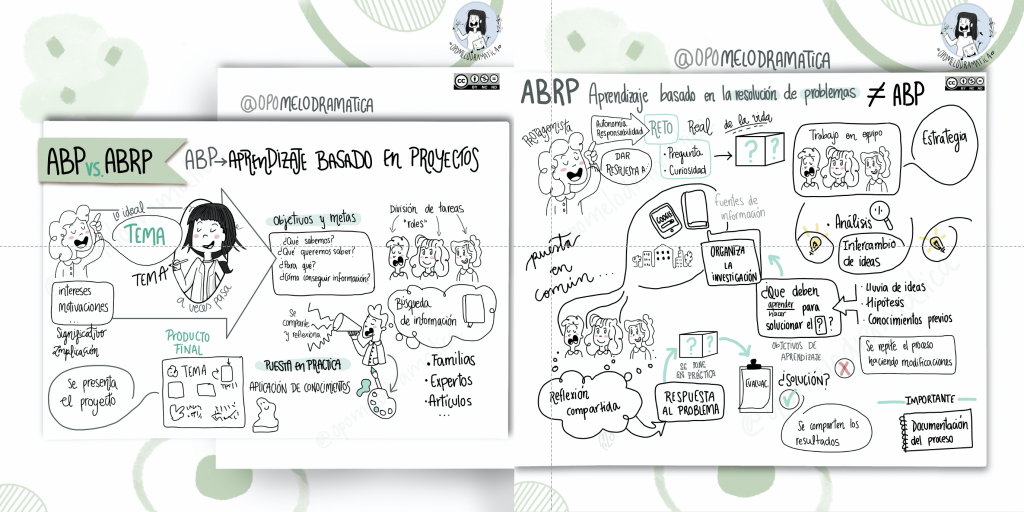 @OPOMELODRAMATICA
ABP VS. ABRP
ABP→APRENDIZAJE BASADO EN PROYECTOS
lo ideal
TEMA
TEMA
a veces pasa
intereses
motivaciones
...
Significativo
Implicación
Se presenta
el proyecto
PRODUCTO
FINAL
TEMA
Objetivos y metas
¿Qué sabemos?
¿Qué queremos saber?
¿Para qué?
¿Cómo conseguir información?
Se
comparte
y reflexiona
PUESTA EN PRÁCTICA
APLICACIÓN DE CONOCIMIENTOS
División de tareas
"roles"
Búsqueda
de información
• Familias
• Expertos
• Artículos
...
OPOMELODRAMATICA
@OPOMELODRAMATICA
OPOMELODRAMATICA
ABRP Aprendizaje basado en la resolución de problemas ≠ ABP
Protagonista
Autonomía
Responsabilidad
RETO
Real
de la vida
DAR
RESPUESTA A
• Pregunta
• Curiosidad
? ?
Trabajo en equipo
Estrategia
Análisis
Intercambio
de ideas
GOOGLE
Fuentes de
información
ORGANIZA
LA
INVESTIGACIÓN
puesta
en
común...
¿Qué deben
aprender
hacer
para
solucionar el ? ?
• Lluvia de ideas
• Hipótesis
• Conocimientos previos
OBJETIVOS DE
APRENDIZAJE
Se repite el proceso
haciendo modificaciones
? ?
SE PONE
EN PRÁCTICA
EVALUAC.
¿SOLUCIÓN?
Reflexión
compartida
RESPUESTA
AL PROBLEMA
Se comparten los
resultados
IMPORTANTE
Documentación
del proceso